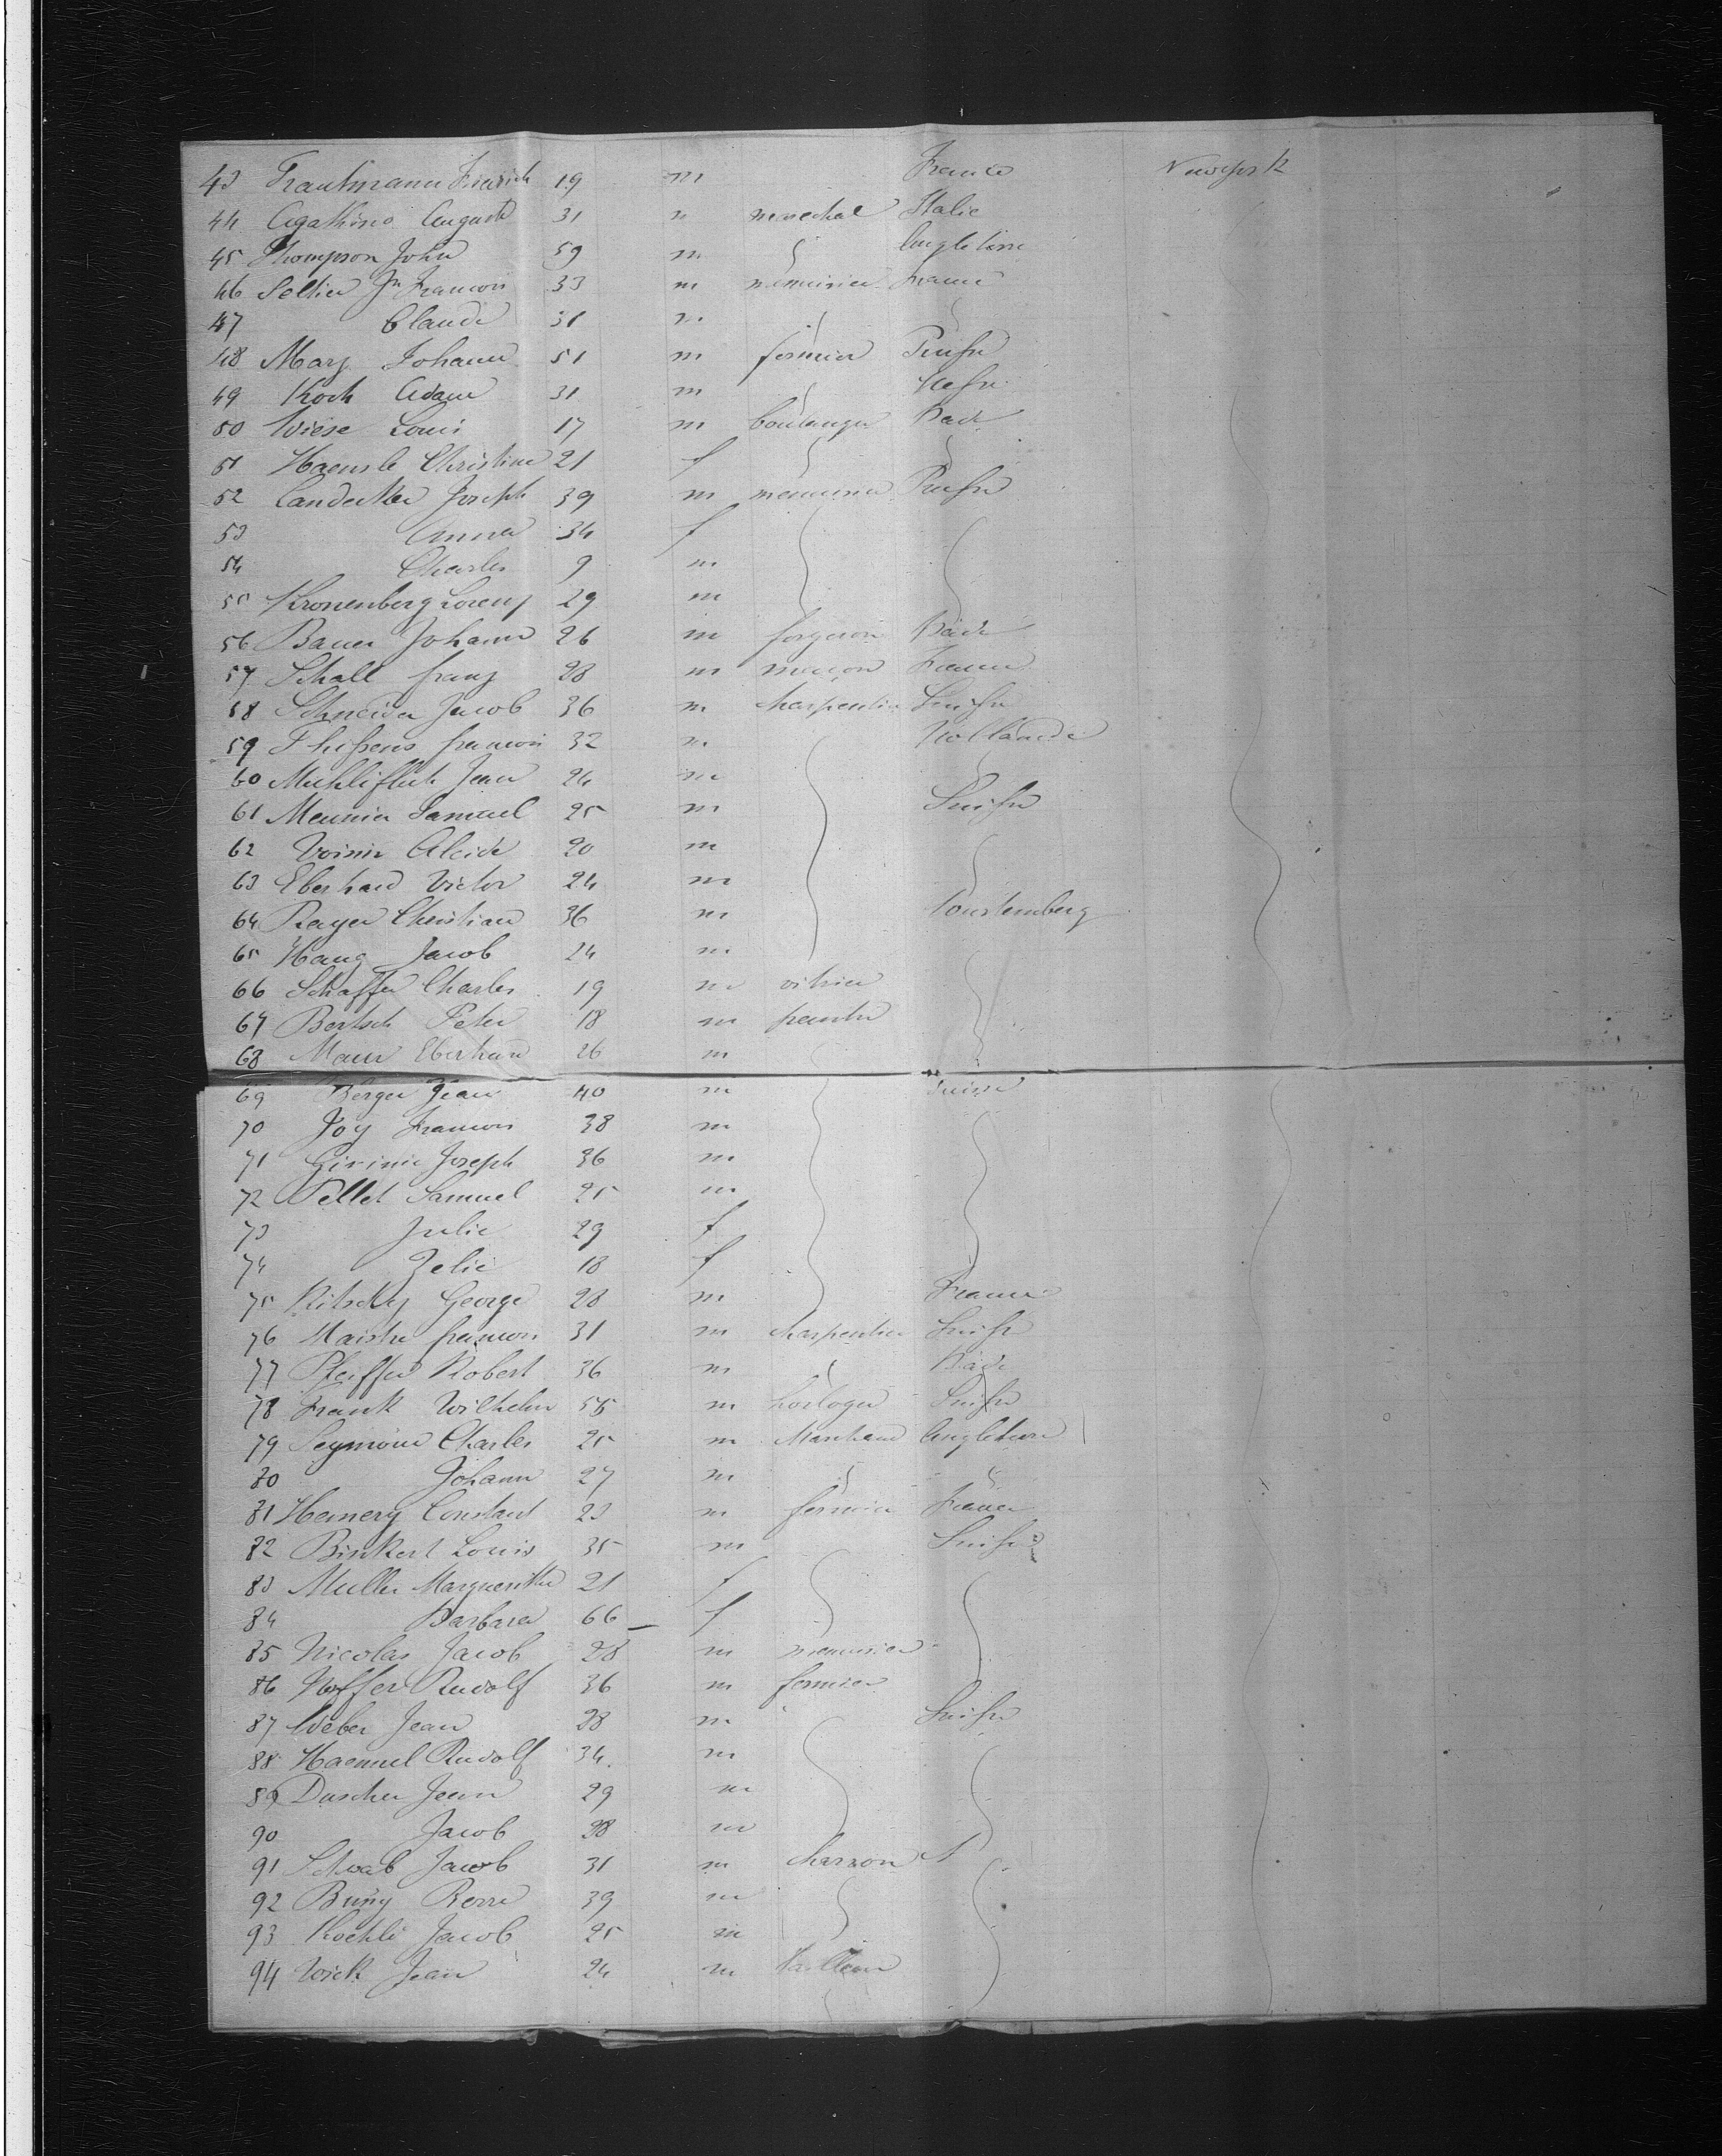 43 Trautmann Friedrich 19 m France Newyork
44 Agathino Auguste 31 m marechal Italie
45 Thompson John 59 m Angleterre
46 Francois 33 m menuisier France
47 Claude 31 m
48 Marz Johann 51 m fermier Prusse
49 Koch Adam 31 m Hesse
50 Wiese Louis 17 m boulanger Bade
51 Haensle Christine 21 f
52 Landecker Joseph 39 m menuisier Prusse
53 Anna 34 f
54 Charles 9 m
55 Kronenberg Lorenz 29 m
56 Bauer Johann 26 m forgeron Bade
57 Schall franz 28 m macon France
58 Schneider Jacob 36 m charpentier Suisse
59 Thissens francois 32 m Hollande
60 Jean 24 m
61 Meunier Samuel 25 m Suisse
62 Voisin Alcide 20 m
63 Eberhard Victor 24 m
64 Rayer Christian 36 m Wurtemberg
65 Haug Jacob 24 m
66 Schaffer Charles 19 m vitrier
67 Bertsch Peter 18 m peintre
68 Maur Eberhard 26 m
69 Berger Jean 40 m Suisse
70 Joy Francois 38 m
71 Joseph 36 m
72 Pellet Samuel 25 m
73 Julie 29 f
74 Zelie 18 f
75 Kitschy George 28 m France
76 Maistre francois 31 m charpentier Suisse
77 Pfeiffer Robert 36 m Bade
78 Frank Wilhelm 55 m horloger Suisse
79 Seymour Charles 25 m Marchand Angleterre
80 Johann 27 m
81 Hemery Constant 23 m fermier France
82 Binkert Louis 35 m Suisse
83 Muller Marguerithe 21 f
84 Barbara 66 f
85 Nicolas Jacob 28 m menuisier
86 Hoffer Rudolf 36 m fermier
87 Weber Jean 28 m Suisse
88 Haemmel Rudolf 34 m
89 Duscher Jean 29 m
90 Jacob 28 m
91 Schwab Jacob 31 m charron
92 39 m
93 Koehli Jacob 25 m
94 Wick Jean 24 m tailleur